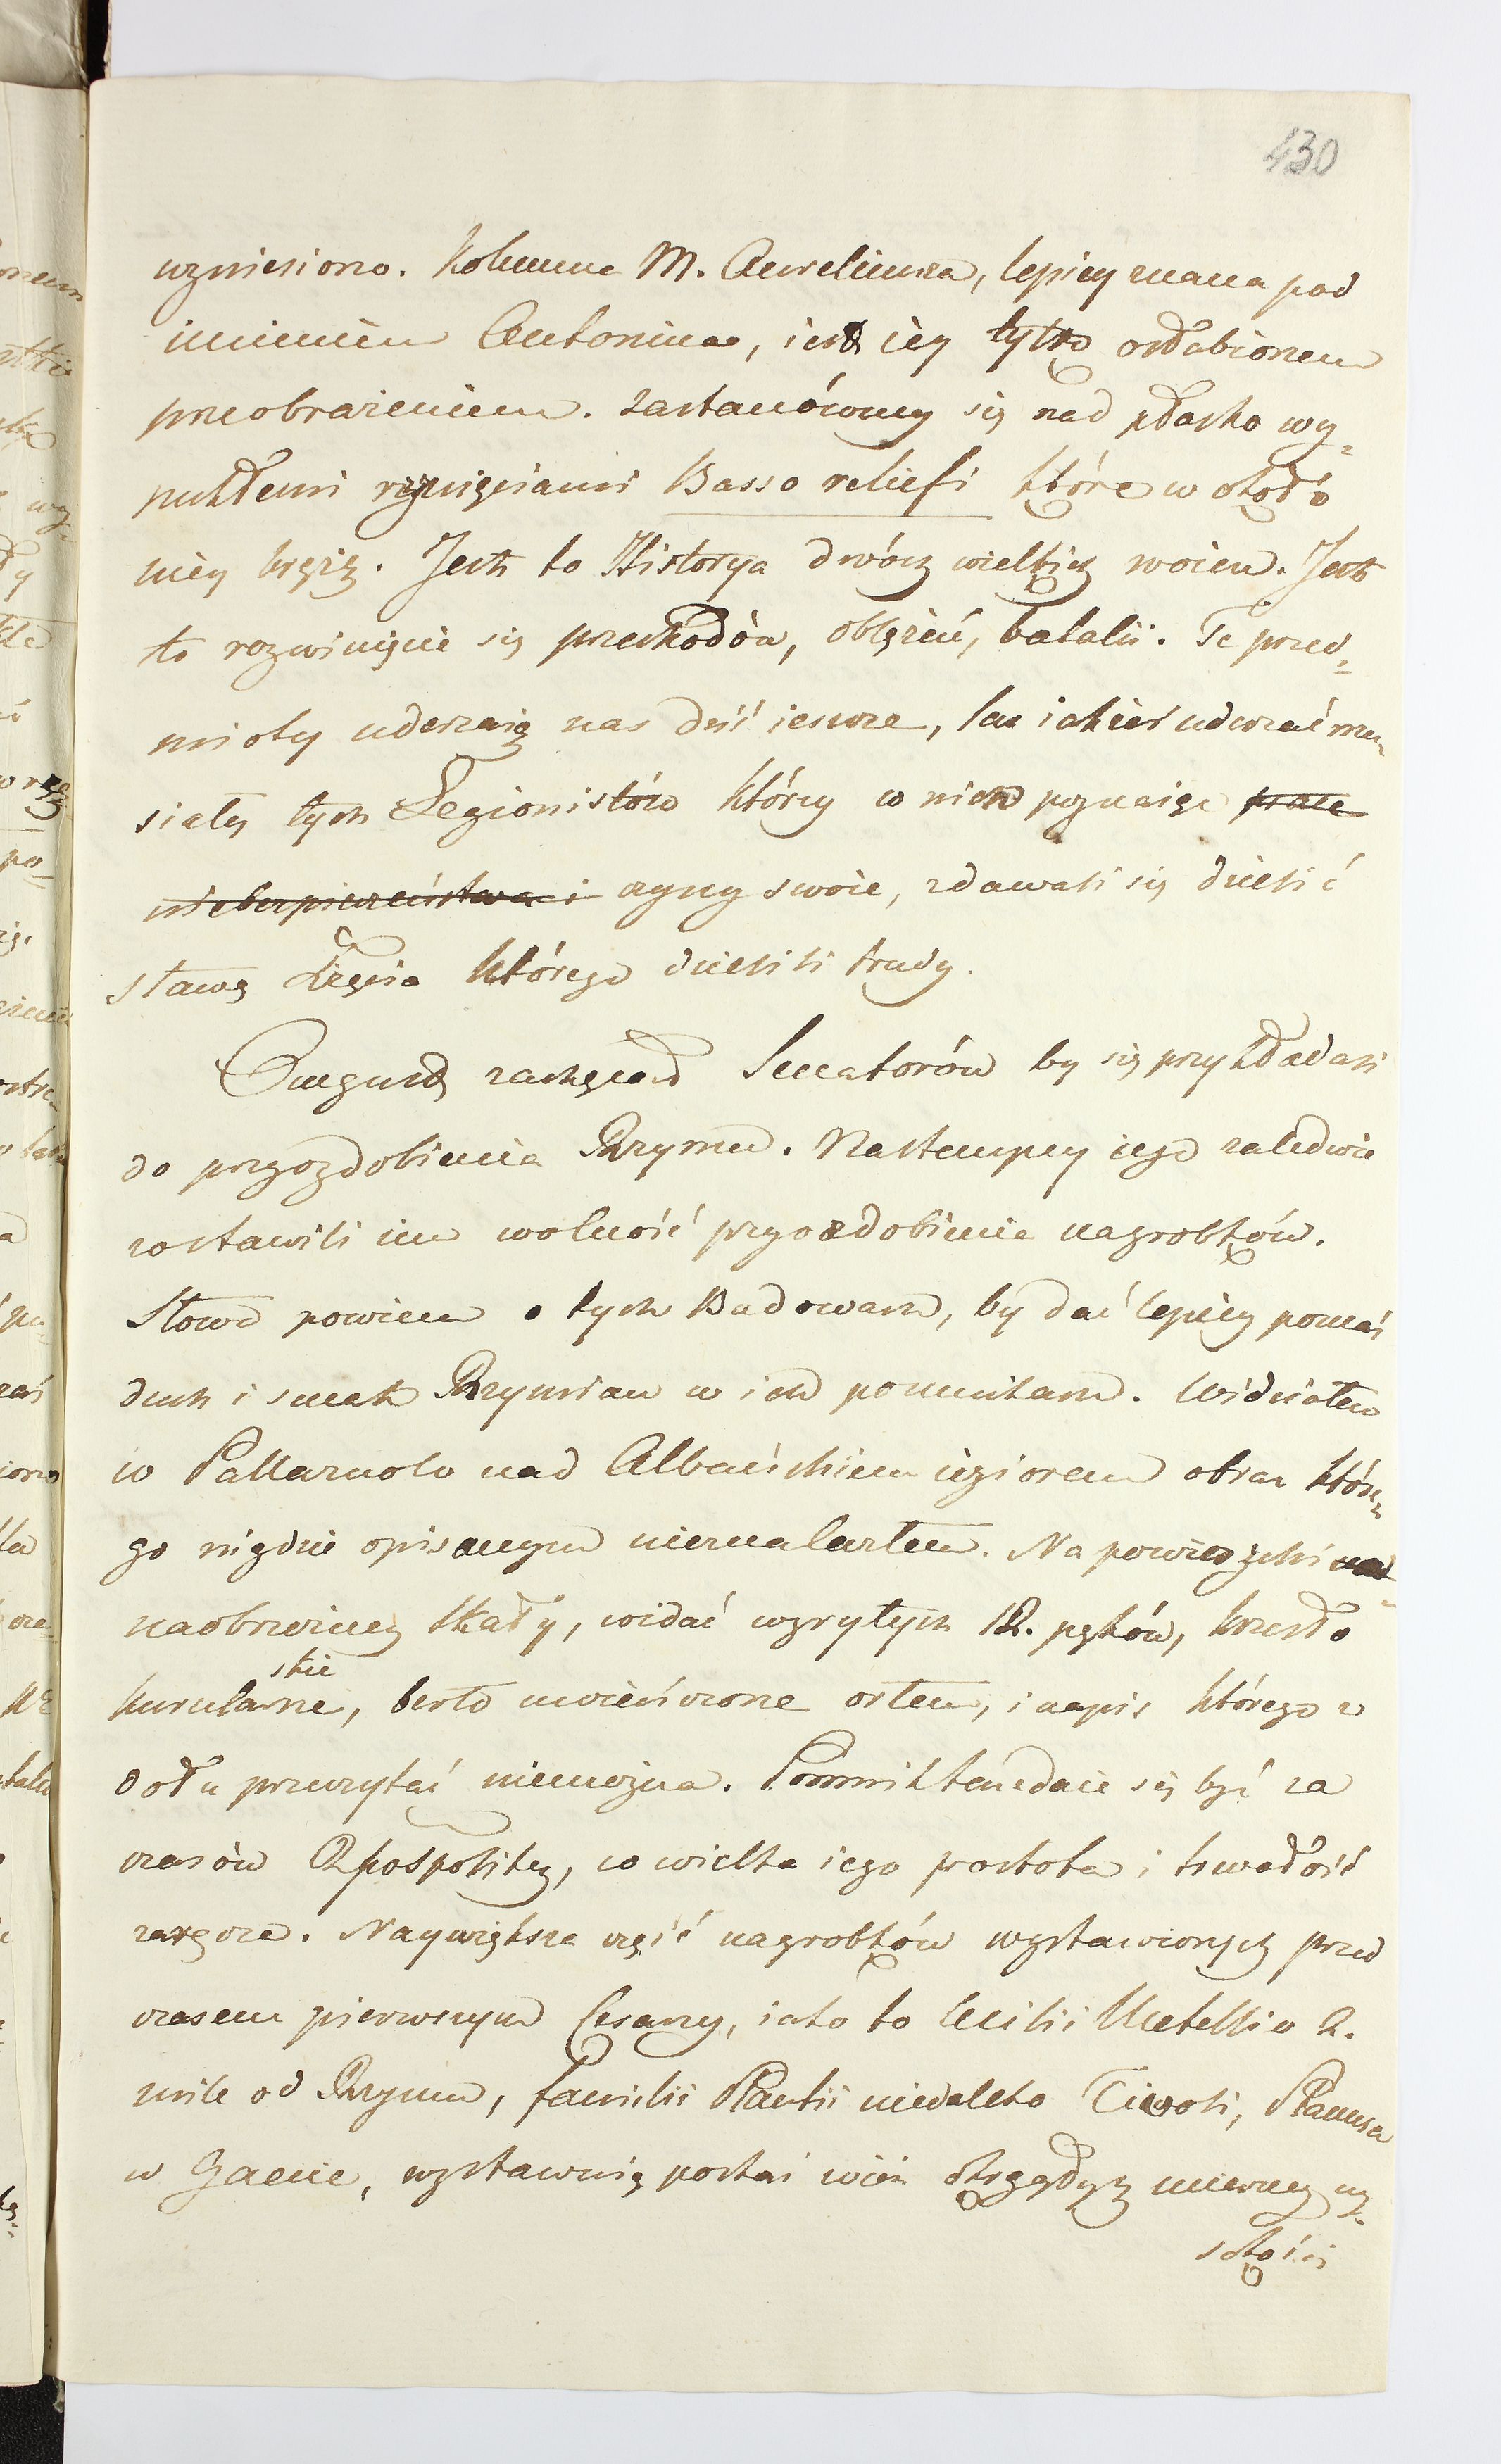 430
wzniesiono. Kolumna M. Aureliusza, lepiey znana pod
imieniem Antonina, iest iey tylko osłabionem
przeobrażeniem. Zastanówmy się nad płasko wy-
pukłemi rznięciami Basso reliefi które w około
niey krążą. Jest to Historya dwóch wielkich woien. Jest
to rozwinięcie się przechodów, oblężeń, batalii. Te przed-
mioty uderzaią nas dziś ieszcze, lecz iakież uderzać mu-
siały tych Legionistów którzy w nich poznaiąc prace
niebezpieczeństwa i czyny swoie, zdawali się dzielić
sławę Xięcia którego dzielili trudy.
August zachęcał Senatorów by się przykładali
do przyozdobienia Rzymu. Nastempcy iego zaledwie
zostawili im wolność przyozdobienia nagrobków.
Słowo powiem o tych Budowach, by dać lepiey poznać
duch i smak Rzymian w ich pomnikach. Widziałem
w Pallazuolo nad Albańskiem ieziorem obraz które-
go nigdzie opisanym nieznalazłem. Na powierzchni
naobrwiney skały, widać wyrytych 12. pęków, krzesło
kurulskie, berło uwieńczone orłem, i napis którego z
dołu przeczytać niemożna. Pomnik ten zdaie się być za
czasów Rpospolitey, co wielka iego prostota i trwałość
zaręcza. Naywiększa część nagrobków wystawionych przed
czasem pierwszym Cesarzy, iako to Cecilii Metelli o 2.
mile od Rzymu, familii Plautii niedaleko Tivoli, Plancusa
w Gaecie, wystawuią postać wież okrągłych mierney wy-
sokości